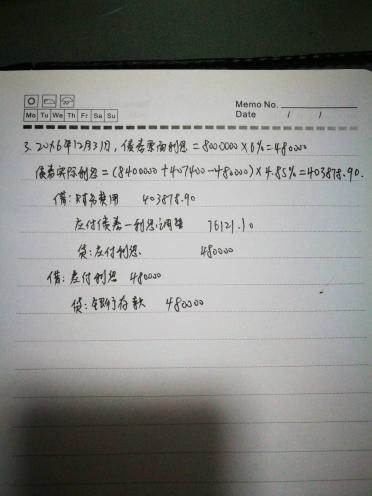 Memo No.
Mo Tu We Th Fr Sa Su
Date / /
3. 20×6年12月31日, 债券票面利息=8000000×6%=480000
债券实际利息=(8400000+407400-480000)×4.85%=403878.90.
借: 财务费用 403878.90
应付债券—利息调整 76121.10
贷: 应付利息 480000
借: 应付利息 480000
贷: 银行存款 480000